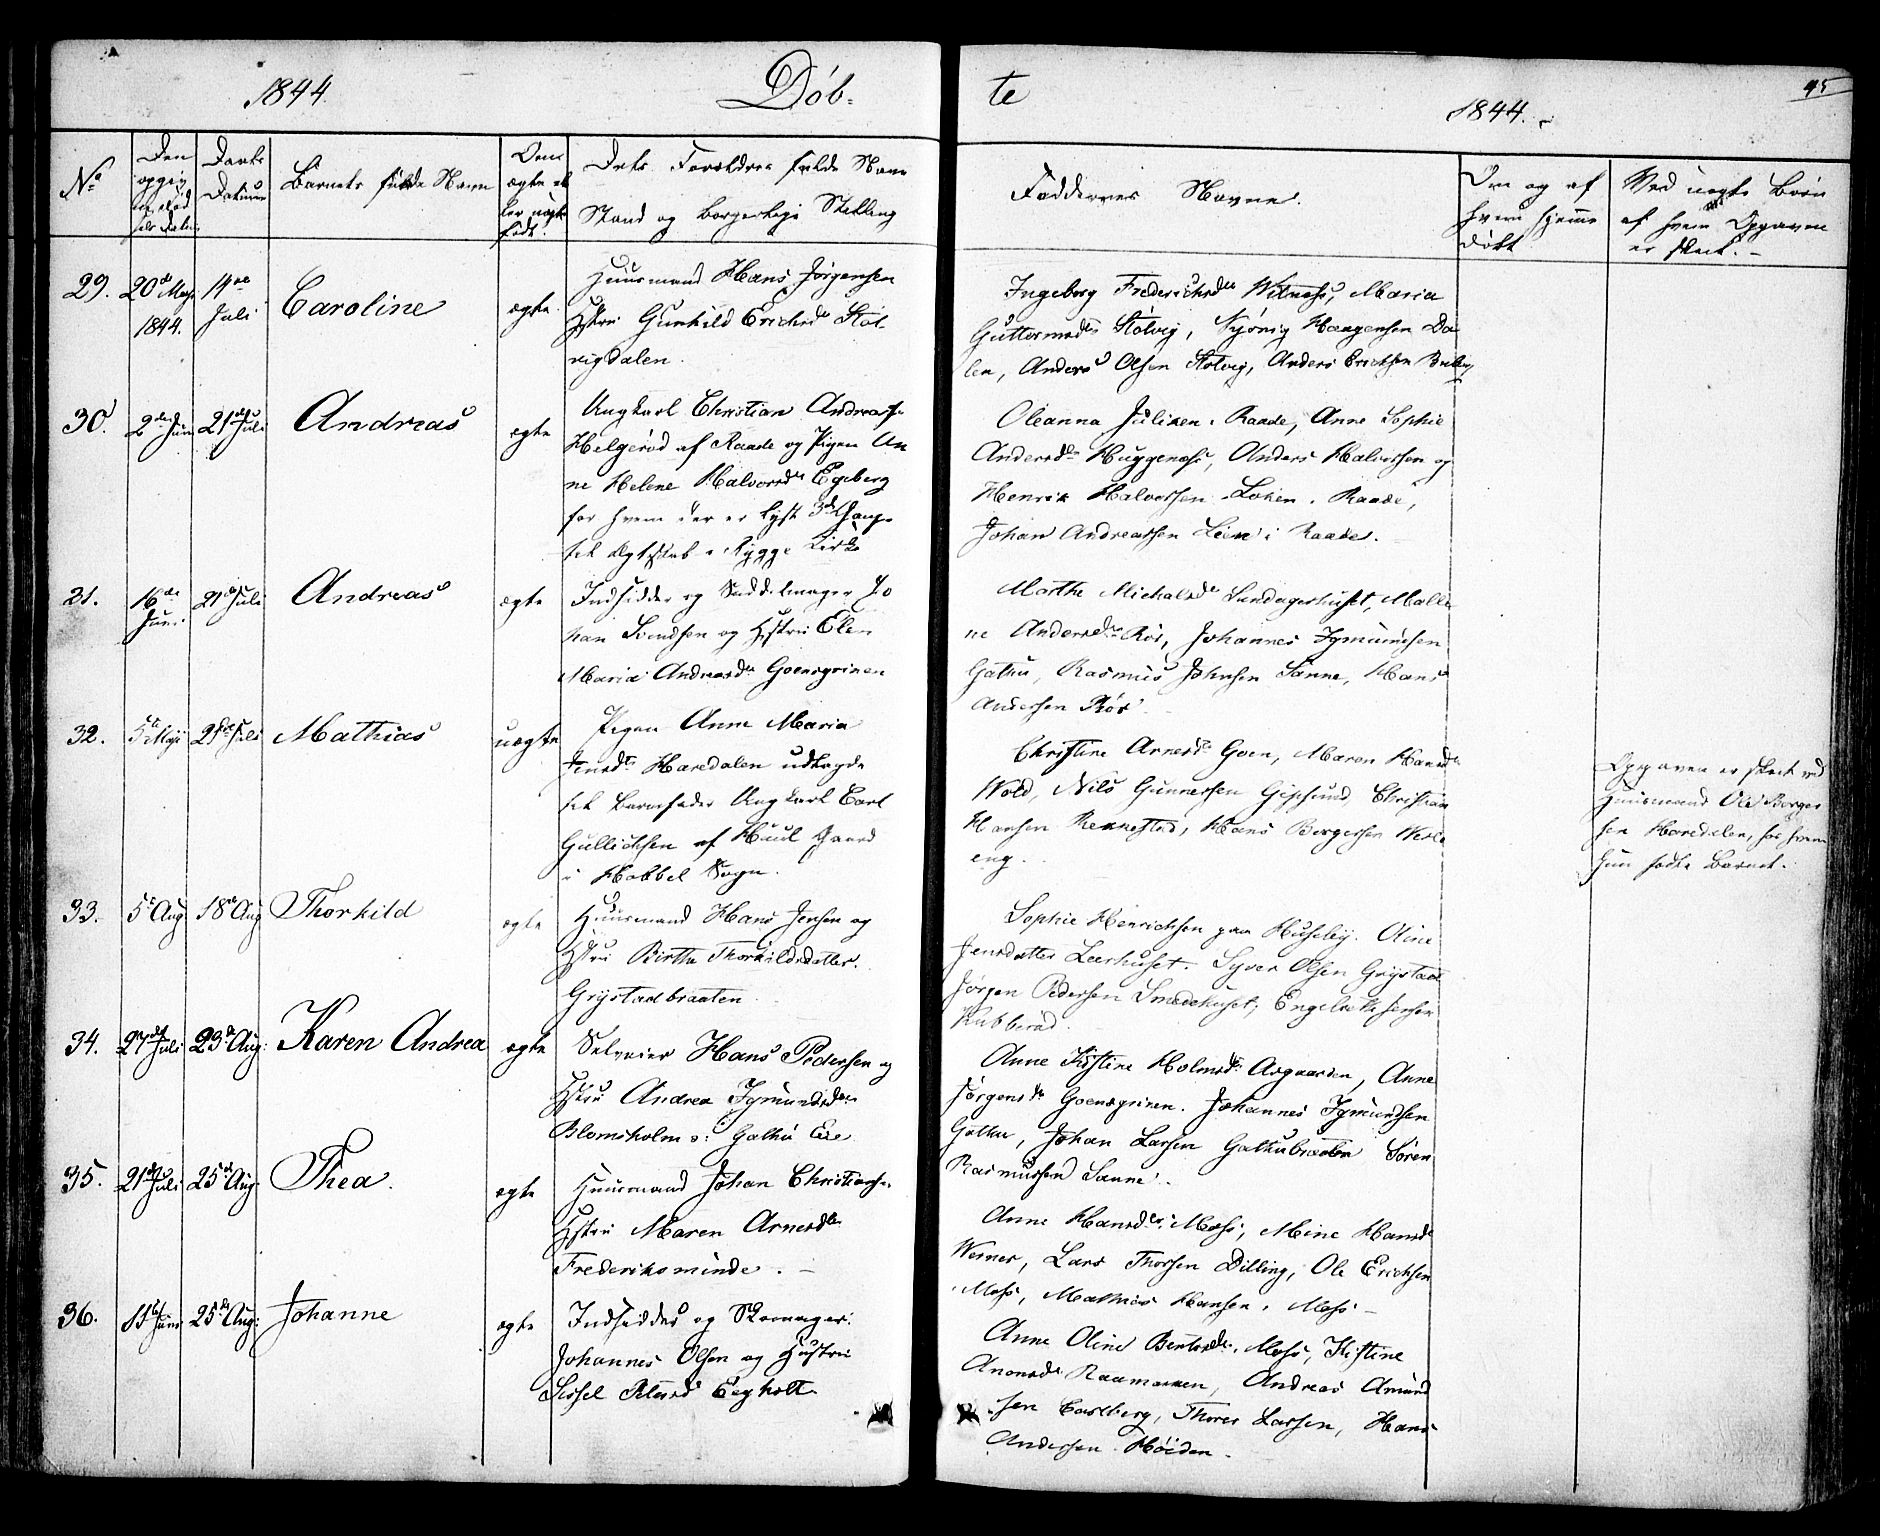 1844.
Døb-
te
1844.
45
No
Den
Daabs
Datum
Barnets fulde Navn
Om
ægte el
ler uægte
født.
Dets Forældres fulde Navn
Stand og borgerlige Stilling
Faddernes Navne.
Om og af
hvem hjemme
døbt
Ved uægte Børn
af hvem Opgaven
er skeet.
29.
20de Mai
1844.
14de
Juli
Caroline
ægte
Huusmand Hans Jørgensen
Hstru Gunhild Erichsd Stol-
vigdalen.
Ingeborg Frederichsdtr Witnæss, Maria
Guttormsdtr Stolvig, Haagensen Da-
len, Anders Olsen Stolvig, Anders Erichsen
30.
2den Juni
21de Juli
Andreas
ægte
Ungkarl Christian Andreass.
Helgerød af Raade og Pigen An-
ne Helene Halvorsdtr Egeberg
for hvem der er lyst 3de Gang
til Ægteskab i Rygge Kirke
Oleanna Julisen i Raade, Anne Sophie
Andersdtr Huggenæss, Anders Halvorsen og
Henrik Halvorsen Loken i Raade,
Johan Andreassen Lien i Raade.
31.
16de
Juni
21de Juli
Andreas
ægte
Indsidder og Saddelmager Jo-
han Svendsen og Hstru Elen
Maria Andreasdtr Goensgrinen
Marthe Michalsdtr Sandagerhuset, Malle-
ne Andersdtr Rør, Johannes Igmundsen
Gathu, Rasmus Johnsen Sanne, Hans
Andersen Rør
32.
5te Maji
21de Juli
Mathias
uægte
Pigen Anne Maria
Jensdtr Haredalen udlagde
til Barnefader Ungkarl Carl
Gullichsen af Huul Gaard
i Hobbel Sogn.
Christine Arnesdtr Goen, Maren Hansdtr
Wold, Nils Gunnersen Gipsund, Christian
Hansen Rennestad, Hans Borgersen Werle-
eng.
Opgaven er skeet ved
Huusmand Ole Borger-
sen Haredalen, hos hvem
hun fødte Barnet.
33.
5te Aug
18de Aug
Thorkild
ægte
Huusmand Hans Jensen og
Hstru Birthe Thorkildsdatter.
Grystadbraaten
Sophie Henrichsen paa Huseby. Oline
Jensdatter Leerhuset. Syver Olsen Grystad
Jørgen Pedersen Smedehuset, Engelbrekt Jensen
Kubberød.
34.
27de Juli
23de Aug:
Karen Andrea
ægte
Selveier Hans Pedersen og
Hstru Andrea Igmundsdtr
Blomsholm o: Gathu Eie
Anne Kistine Holmsdtr Aagaarden, Anne
Jørgensdtr Goensgrinen. Johannes Igmundsen
Gathu, Johan Larsen Gathubraaten Søren
Rasmussen Sanne.
35.
21de Juli
25de Aug.
Thea.
ægte
Huusmand Johan Christians.
Hstru Maren Arnesdtr
Frederiksminde.
Anne Hansdtr Moss, Mine Hansdtr
Werner, Lars Thorsen Dilling, Ole Erichsen
i Moss, Mathias Hansen i Moss
36.
15de Juni
25de Aug:
Johanne
ægte
Indsidder og Skomager
Johannes Olsen og Hustru
Sissel Eegholt
Anne Oline Berntsdtr i Moss, Kistine
Anonsdtr Raamarken, Andreas Amund-
sen Carlberg, Thorer Larsen, Hans
Andersen Høiden.